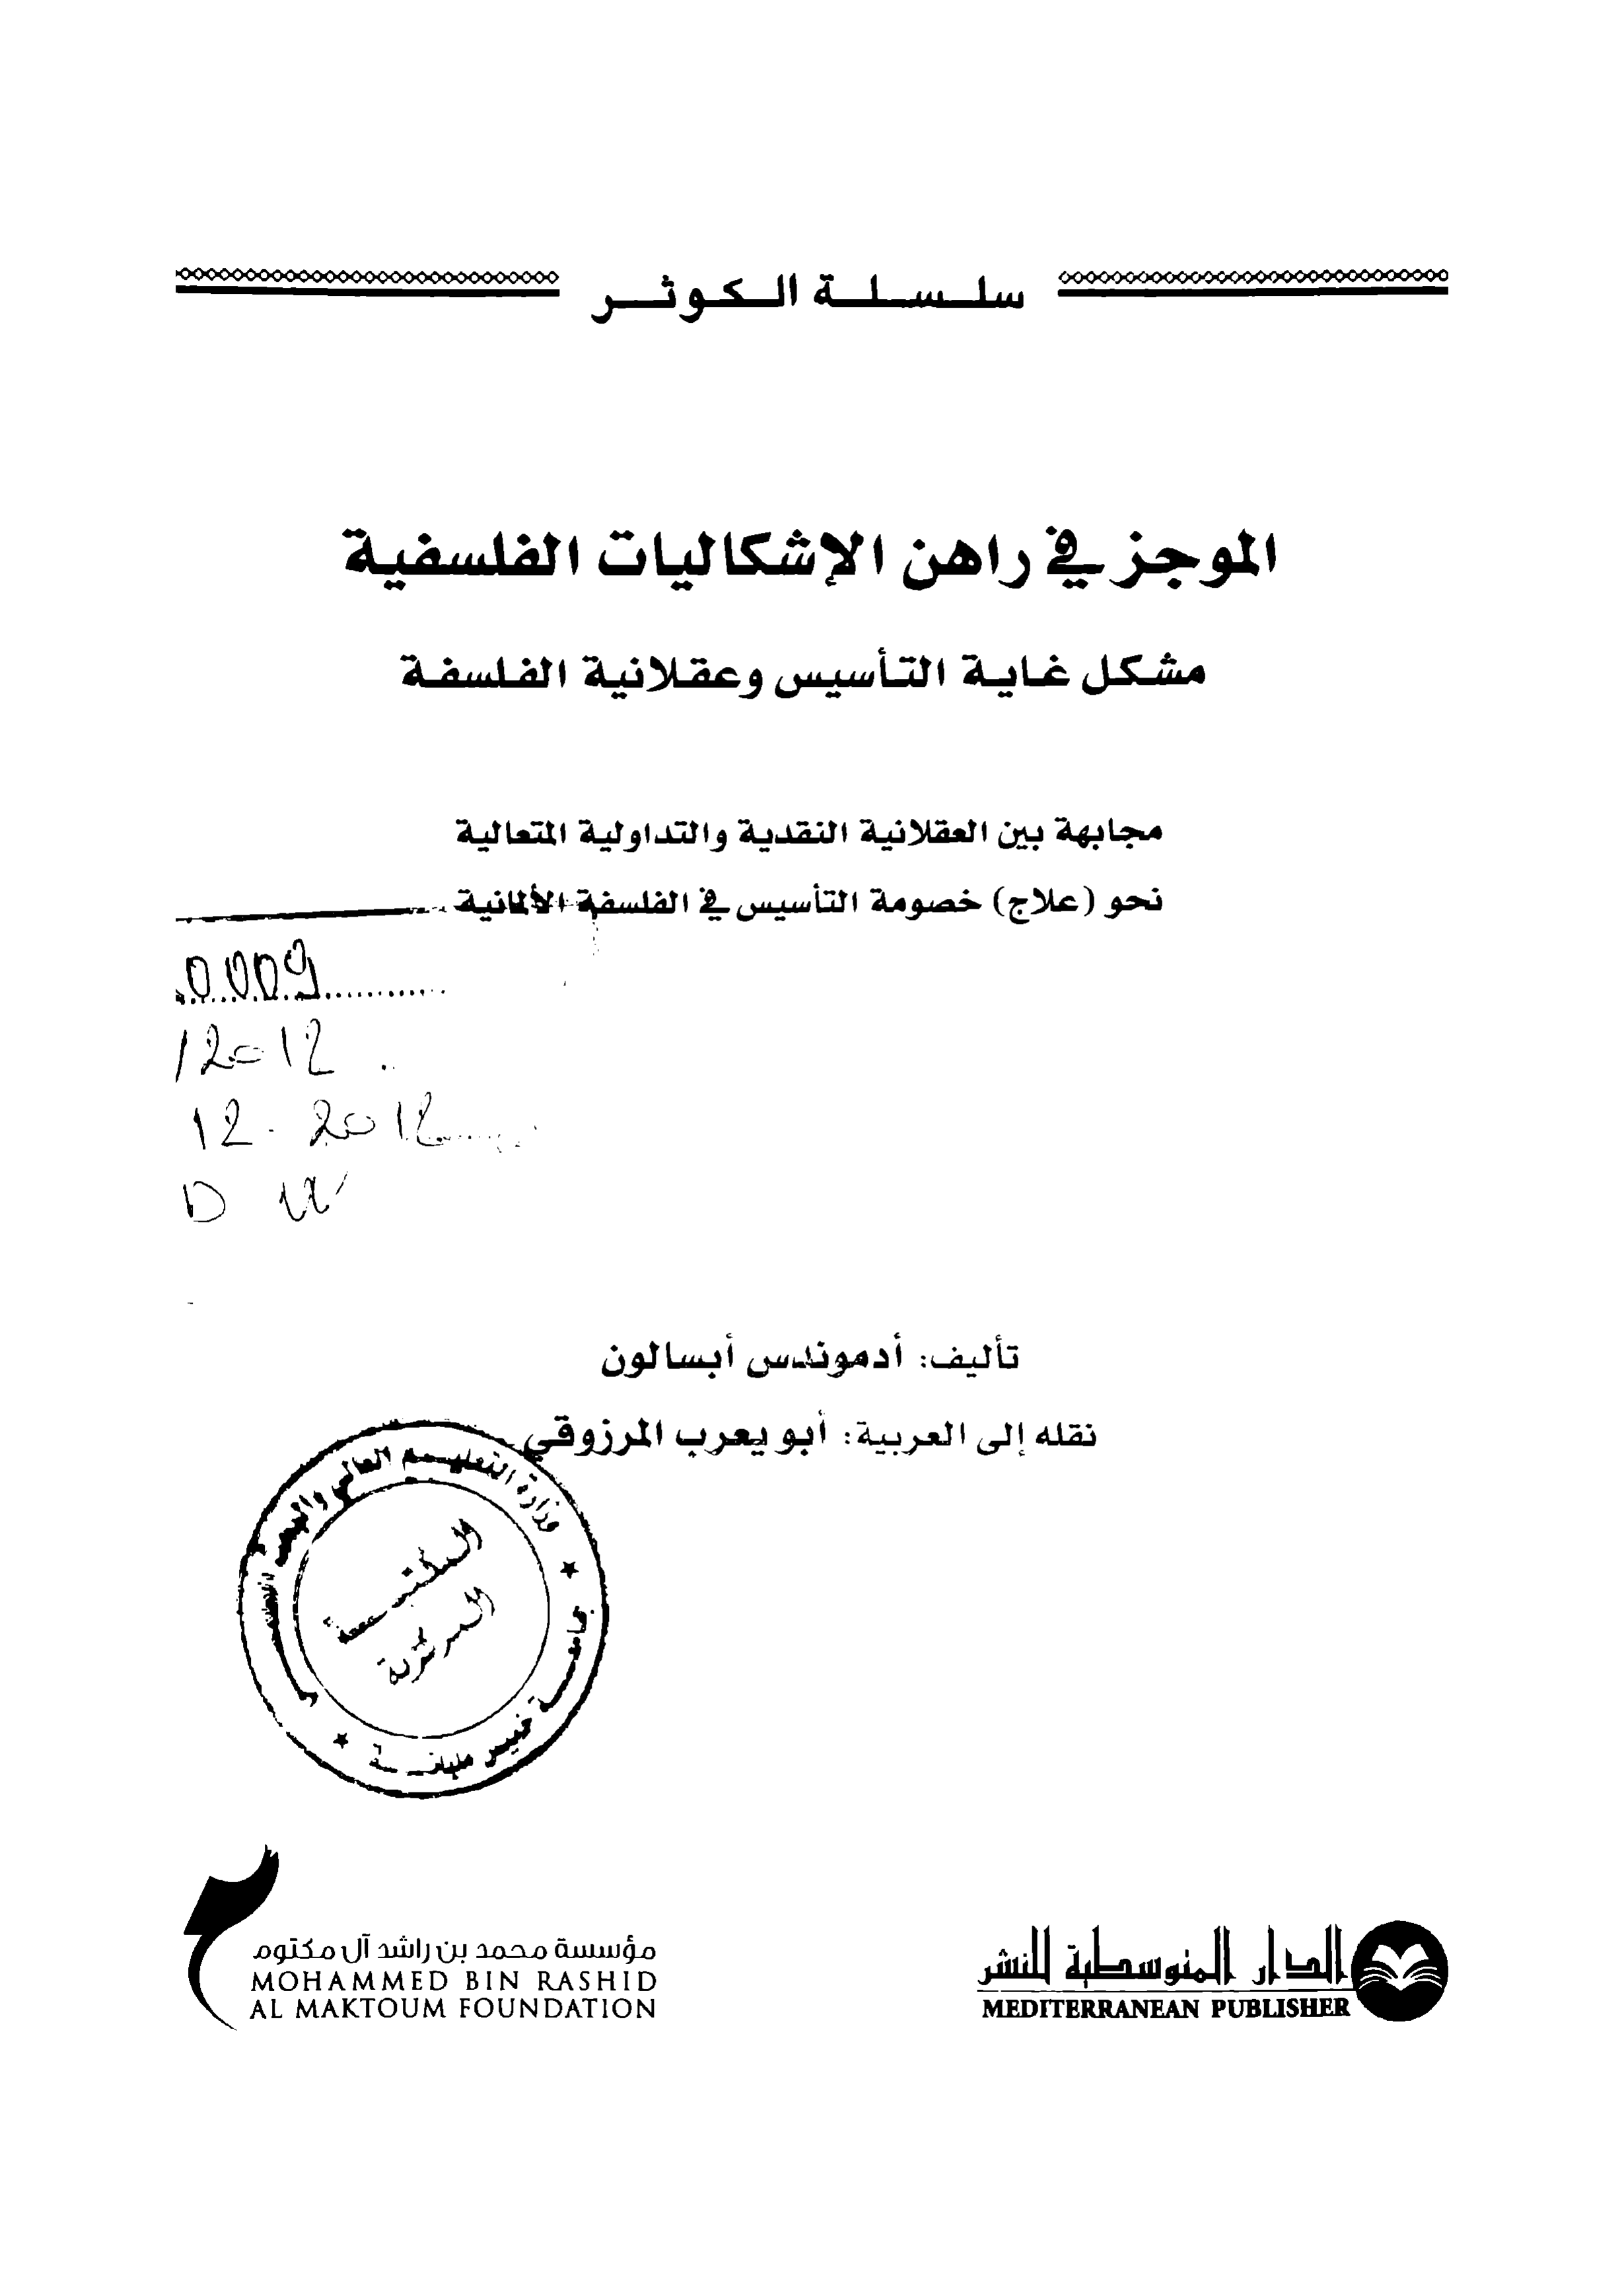 سلسلة الكوثر
الموجز في راهن الإشكاليات الفلسفية
مشكل غاية التأسيس وعقلانية الفلسفة
مجابهة بين العقلانية النقدية والتداولية المتعالية
نحو (علاج) خصومة التأسيس في الفلسفة الألمانية
0009
/2012
12-2012
D
تأليف: أدموندس أبسالون
نقله إلى العربية: أبو يعرب المرزوقي
وزارة التعليم العالي والبحث العلمي
المكتبة
المركزية
جامعة خميس مليانة
مؤسسة محمد بن راشد آل مكتوم
MOHAMMED BIN RASHID
AL MAKTOUM FOUNDATION
الدار المتوسطية للنشر
MEDITERRANEAN PUBLISHER